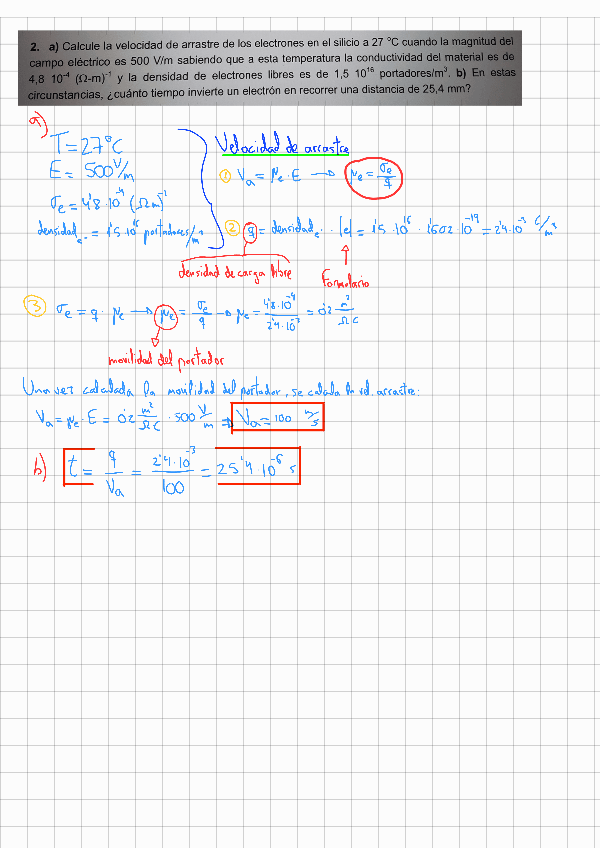 2. a) Calcule la velocidad de arrastre de los electrones en el silicio a 27 ºC cuando la magnitud del
campo eléctrico es 500 V/m sabiendo que a esta temperatura la conductividad del material es de
4,8 10⁻⁴ (Ω-m)⁻¹ y la densidad de electrones libres es de 1,5 10¹⁶ portadores/m³. b) En estas
circunstancias, ¿cuánto tiempo invierte un electrón en recorrer una distancia de 25,4 mm?
a)
T = 27°C
E = 500 V/m
σe = 4'8·10⁻⁴ (Ωm)⁻¹
densidad e⁻ = 1'5·10¹⁶ portadores/m³
Velocidad de arrastre
① Va = μe·E → μe = σe/q
② q = densidad e⁻ · |e| = 1'5·10¹⁶ · 1'602·10⁻¹⁹ = 2'4·10⁻³ C/m³
densidad de carga libre
Formulario
③ σe = q · μe → μe = σe/q → μe = 4'8·10⁻⁴/2'4·10⁻³ = 0'2 m²/ΩC
movilidad del portador
Una vez calculada la movilidad del portador, se calcula la vel. arrastre:
Va = μe·E = 0'2 m²/ΩC · 500 V/m ⇒ Va = 100 m/s
b) t = q/Va = 2'4·10⁻³/100 = 25'4·10⁻⁶ s